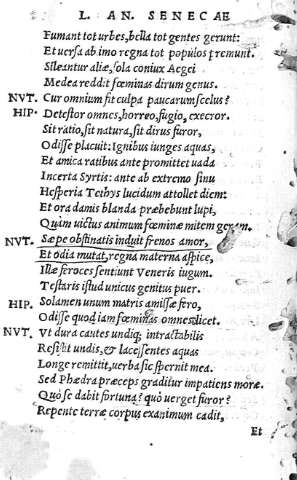 L. AN. SENECAE
Fumant tot urbes, bella tot gentes gerunt:
Et uersa ab imo regna tot populos premunt.
Sileantur aliæ, sola coniux Aegei
Medea reddit fœminas dirum genus.
NVT. Cur omnium fit culpa paucarum scelus?
HIP. Detestor omnes, horreo, fugio, execror.
Sit ratio, sit natura, sit dirus furor,
Odisse placuit: Ignibus iunges aquas,
Et amica ratibus ante promittet uada
Incerta Syrtis: ante ab extremo sinu
Hesperia Tethys lucidum attollet diem:
Et ora damis blanda præbebunt lupi,
Quàm uictus animum fœminæ mitem geram.
NVT. Sæpe obstinatis induit frenos amor,
Et odia mutat, regna materna aspice,
Illæ feroces sentiunt Veneris iugum.
Testaris istud unicus gentis puer.
HIP. Solamen unum matris amissæ fero,
Odisse quod iam fœminas omnes licet.
NVT. Vt dura cautes undiq; intractabilis
Resistit undis, & lacessentes aquas
Longe remittit, uerba sic spernit mea.
Sed Phædra præceps graditur impatiens moræ.
Quò se dabit fortuna? quò uerget furor?
Repente terræ corpus exanimum cadit,
Et